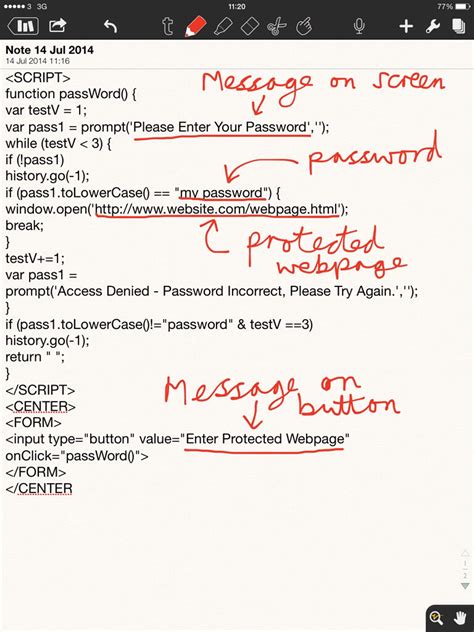 3 3G 11:20 77%
T
Note 14 Jul 2014
14 Jul 2014 11:16
<SCRIPT>
function passWord() {
Message on screen
var testV = 1;
var pass1 = prompt('Please Enter Your Password','');
while (testV < 3) {
if (!pass1)
history.go(-1);
password
if (pass1.toLowerCase() == "my password") {
window.open('http://www.website.com/webpage.html');
break;
}
protected
webpage
testV+=1;
var pass1 =
prompt('Access Denied - Password Incorrect, Please Try Again.','');
}
if (pass1.toLowerCase()!="password" & testV ==3)
history.go(-1);
return " ";
}
</SCRIPT>
<CENTER>
Message on
button
<FORM>
<input type="button" value="Enter Protected Webpage"
onClick="passWord()">
</FORM>
</CENTER
1
2